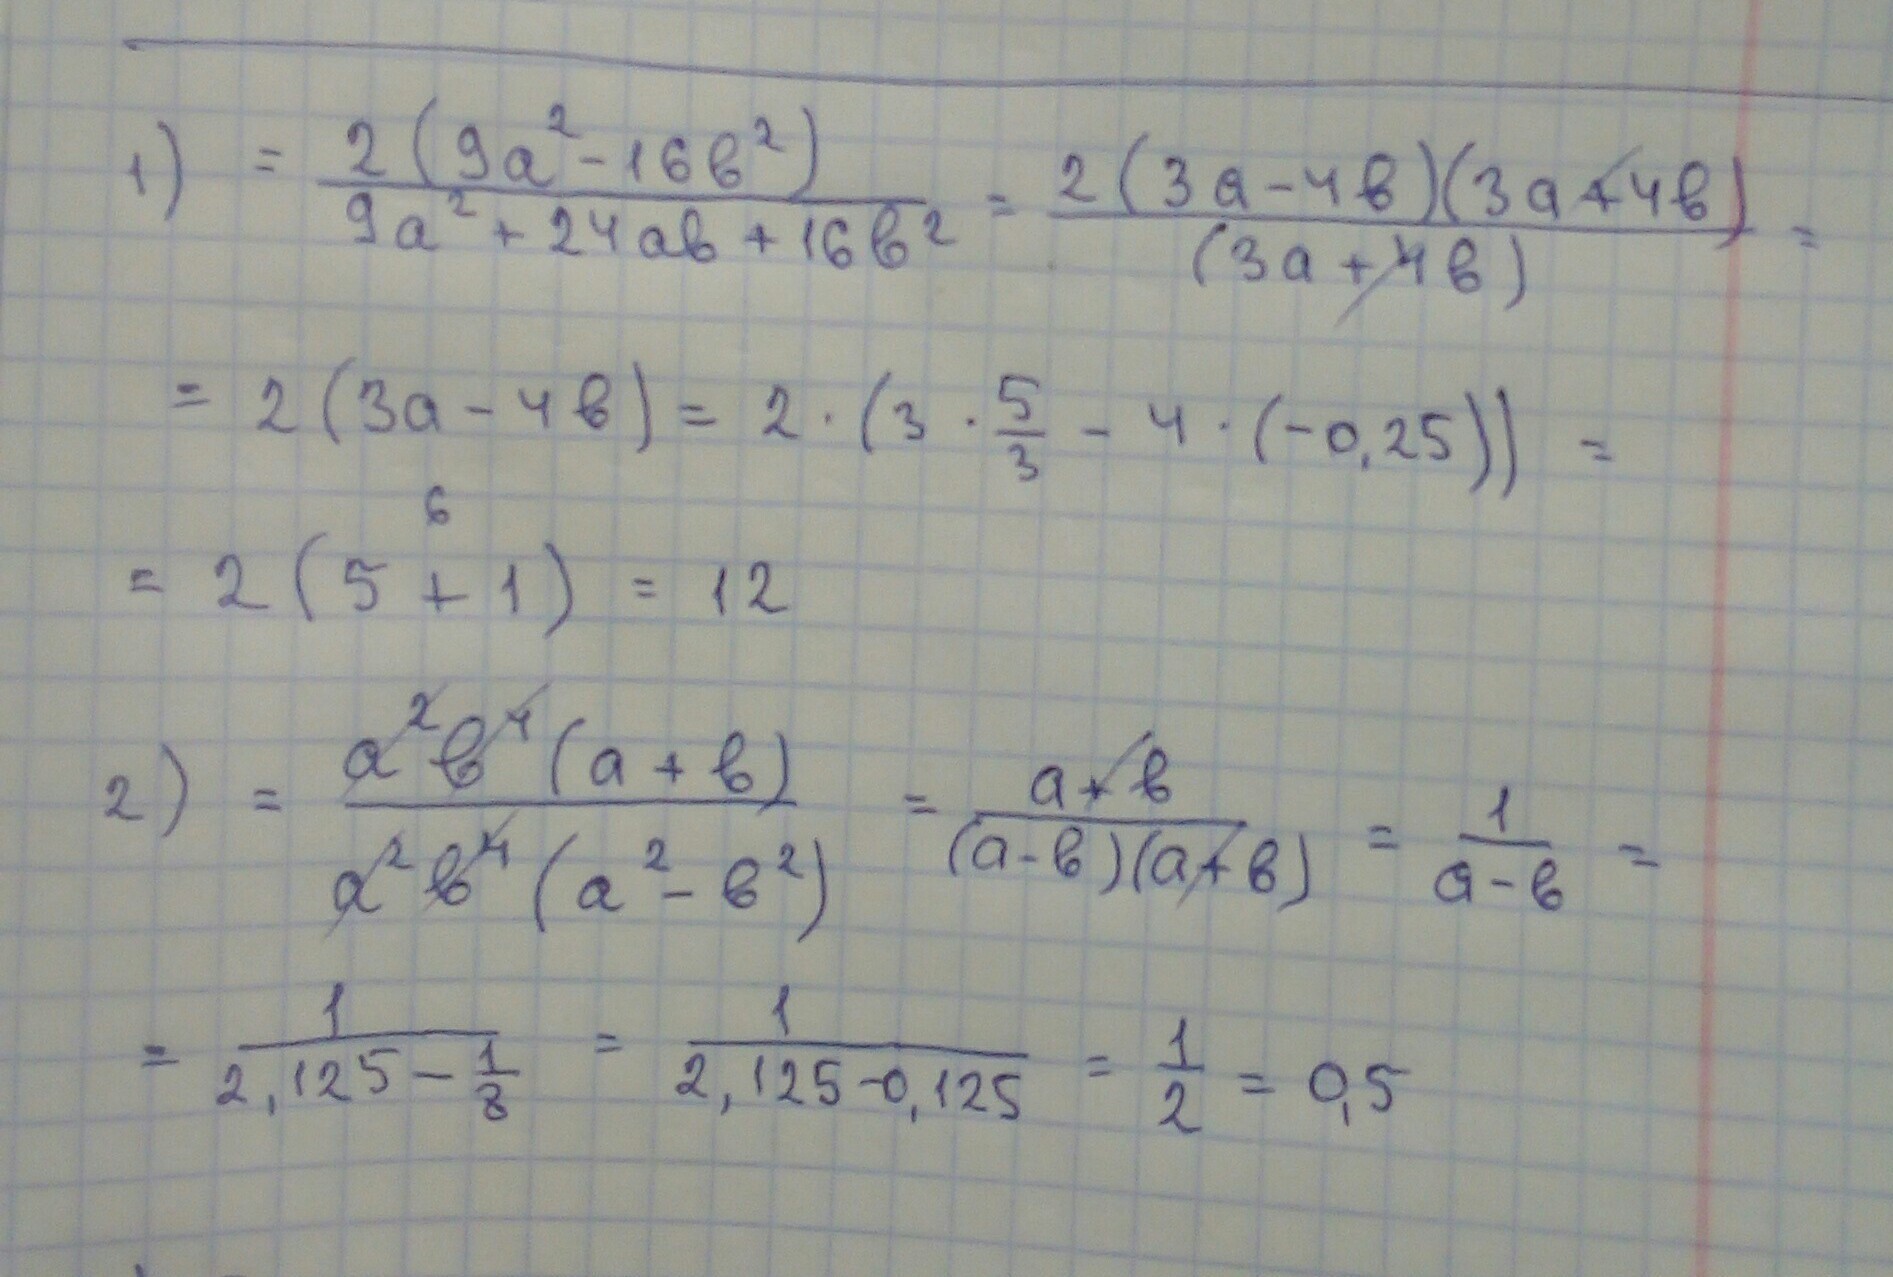 1) = 2(9a²-16в²)/(9a²+24aв+16в²) = 2(3a-4в)(3a+4в)/(3a+4в) =
= 2(3a-4в) = 2·(3·5/3 - 4·(-0,25)) =
6
= 2(5+1) = 12
2) = a²в⁴(a+в)/(a²в⁴(a²-в²)) = (a+в)/((a-в)(a+в)) = 1/(a-в) =
= 1/(2,125-1/8) = 1/(2,125-0,125) = 1/2 = 0,5